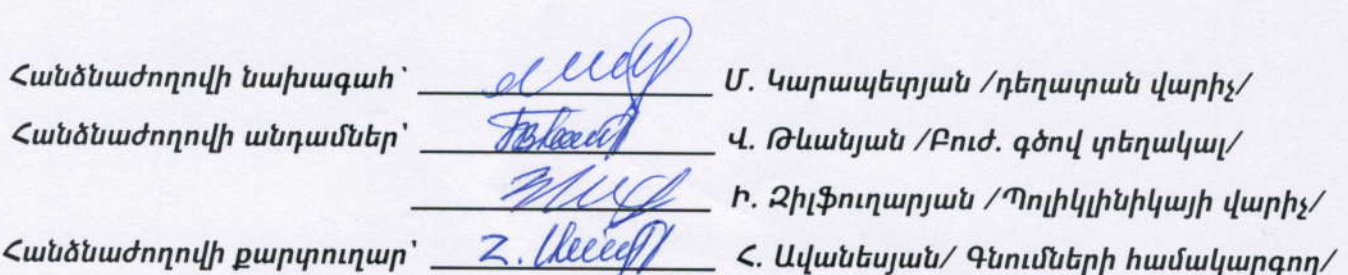 Հանձնաժողովի նախագահ՝ Մ. Կարապետյան /դեղատան վարիչ/
Հանձնաժողովի անդամներ՝ Վ. Թևանյան /Բուժ. գծով տեղակալ/
Ի. Զիլֆուղարյան /Պոլիկլինիկայի վարիչ/
Հանձնաժողովի քարտուղար՝ Հ. Ավանեսյան/ Գնումների համակարգող/